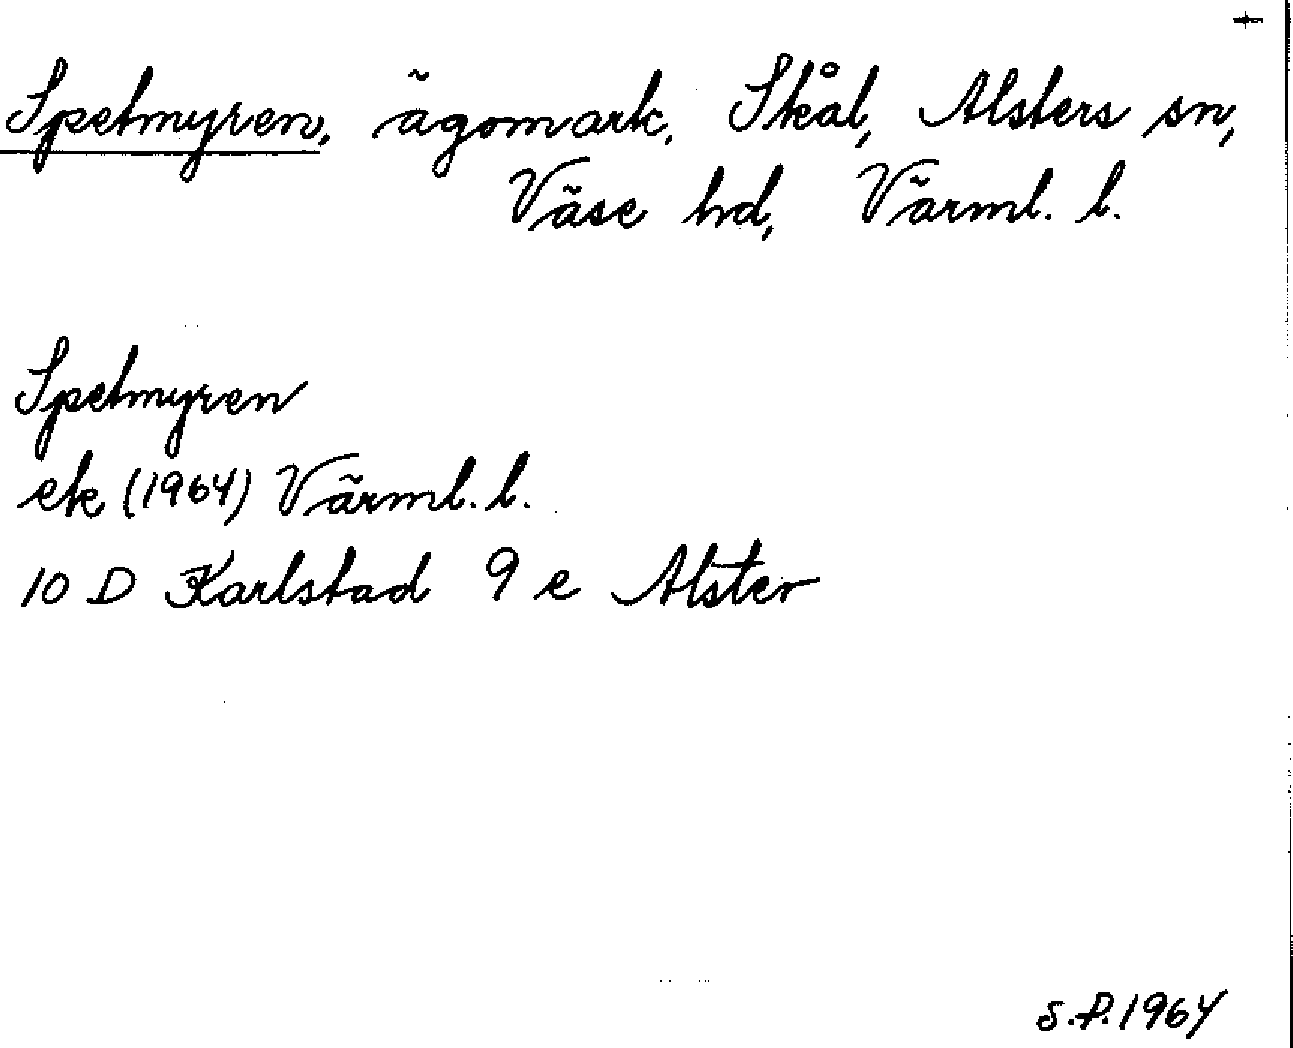 Spetmyren, ägomark, Skål, Alsters sn,
Väse hd, Värml. l.
Spetmyren
ek (1964) Värml. l.
10 D Karlstad 9 e Alster
S.P. 1964